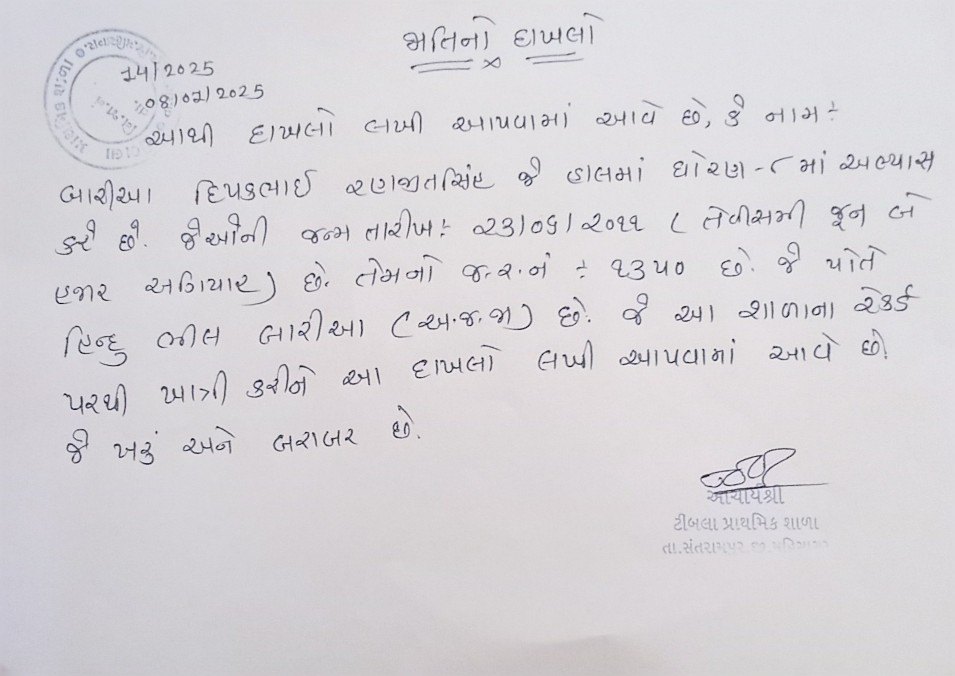 જાતિનો દાખલો
14/2025
08/07/2025
આથી દાખલો લખી આપવામાં આવે છે, કે નામ ÷
બારીઆ દિપકભાઈ રણજીતસિંહ જે હાલમાં ધોરણ - ૮ માં અભ્યાસ
કરે છે. જેઓની જન્મ તારીખ ÷ ૨૩/૦૬/૨૦૧૧ ( તેવીસમી જૂન બે
હજાર અગિયાર) છે. તેમનો જ.ર.નં ÷ ૧૩૫૦ છે. જે પોતે
હિન્દુ ભીલ બારીઆ (અ.જ.જા) છે. જે આ શાળાના રેકર્ડ
પરથી ખાત્રી કરીને આ દાખલો લખી આપવામાં આવે છે.
જે ખરું અને બરાબર છે.
આચાર્યશ્રી
ટીબલા પ્રાથમિક શાળા
તા.સંતરામપુર જી.